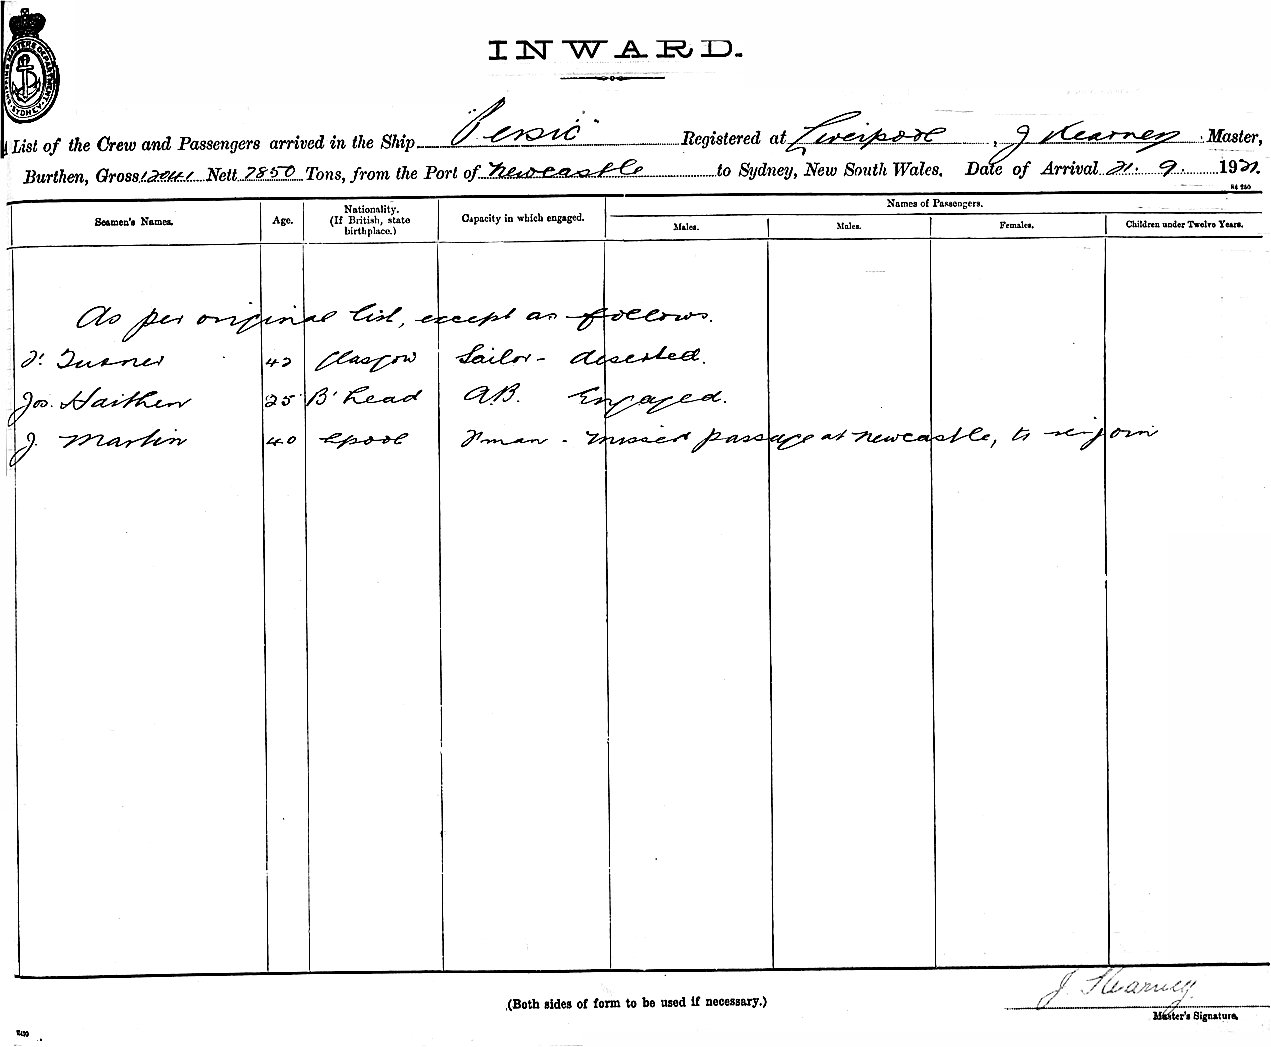 INWARD.
List of the Crew and Passengers arrived in the Ship "Persic" Registered at Liverpool, J Kearney Master,
Burthen, Gross 12041 Nett 7850 Tons, from the Port of Newcastle to Sydney, New South Wales. Date of Arrival 21. 9. 1921.
Names of Passengers.
Seamen's Names. Age. Nationality. (If British, state birthplace.) Capacity in which engaged. Males. Males. Females. Children under Twelve Years.
As per original list, except as follows.
Turner 42 Glasgow Sailor - deserted.
Jos. Haithen 25 B'head A.B. Engaged.
J. Martin 40 Lpool Fman - missed passage at Newcastle, to re-join
(Both sides of form to be used if necessary.)
J. Kearney
Master's Signature.